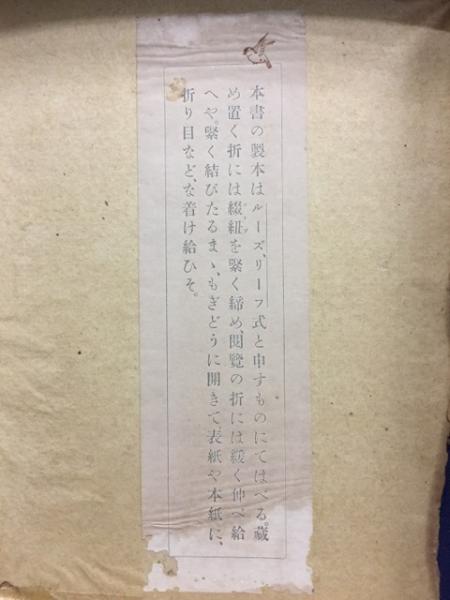 本書の製本はルーズ、リーフ式と申すものにてはべる。蔵
め置く折には綴紐を緊く締め、閲覧の折には緩く伸べ給
へや。緊く結びたるまゝ、もぎどうに開きて表紙や本紙に、
折り目など、な着け給ひそ。